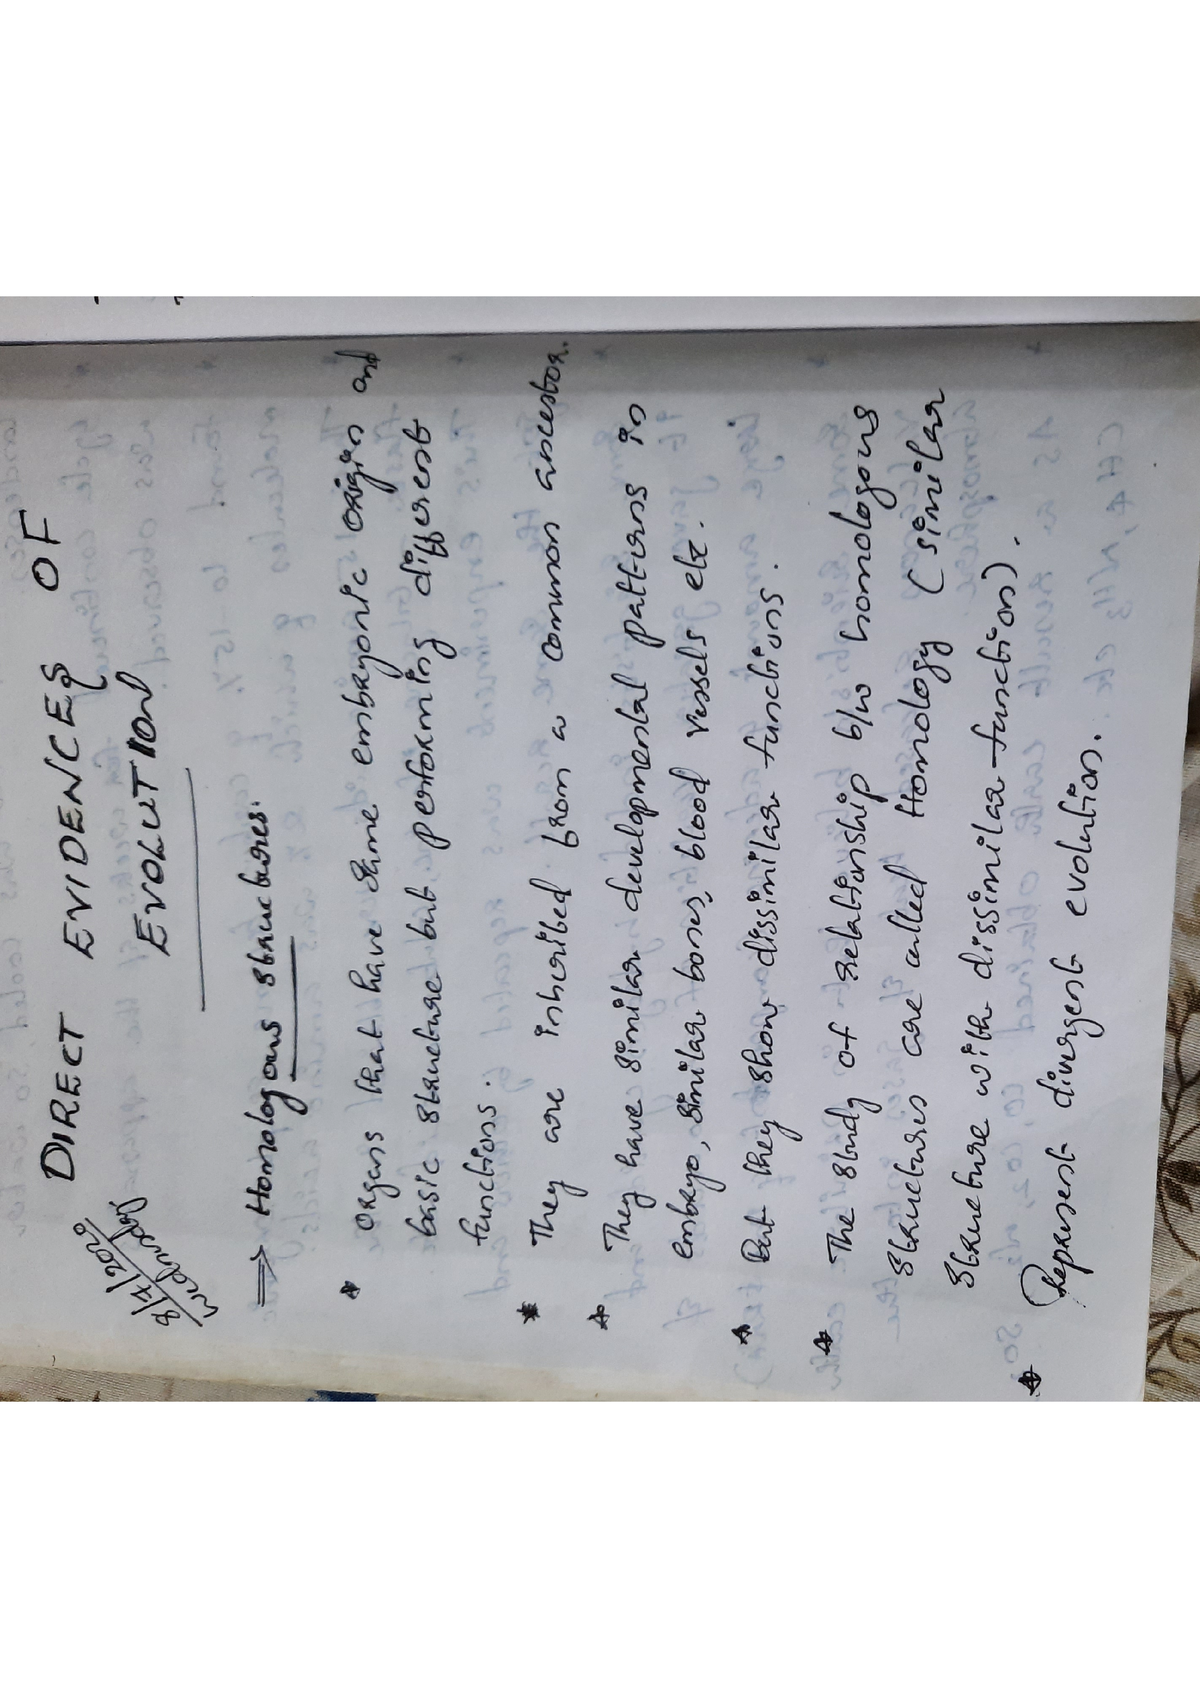 8/4/2020
Wednesday
DIRECT EVIDENCES OF
EVOLUTION
⇒ Homologous structures:
* Organs that have same embryonic origin and
basic structure but performing different
functions.
* They are inherited from a common ancestor.
* They have similar developmental patterns in
embryo, similar bones, blood vessels etc.
* But they show dissimilar functions.
* The study of relationship b/w homologous
structures are called Homology (similar
structure with dissimilar function).
* Represent divergent evolution.